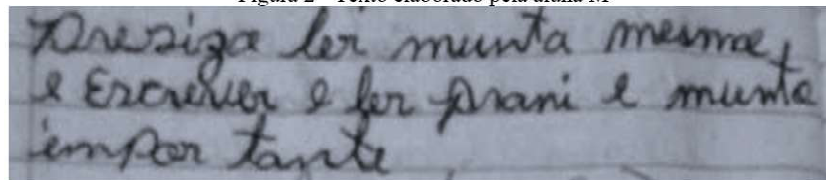 Figura 2 - Texto elaborado pela aluna M
Presiza ler munta mesma,
e Escrever e ler prani e munta
impor tante